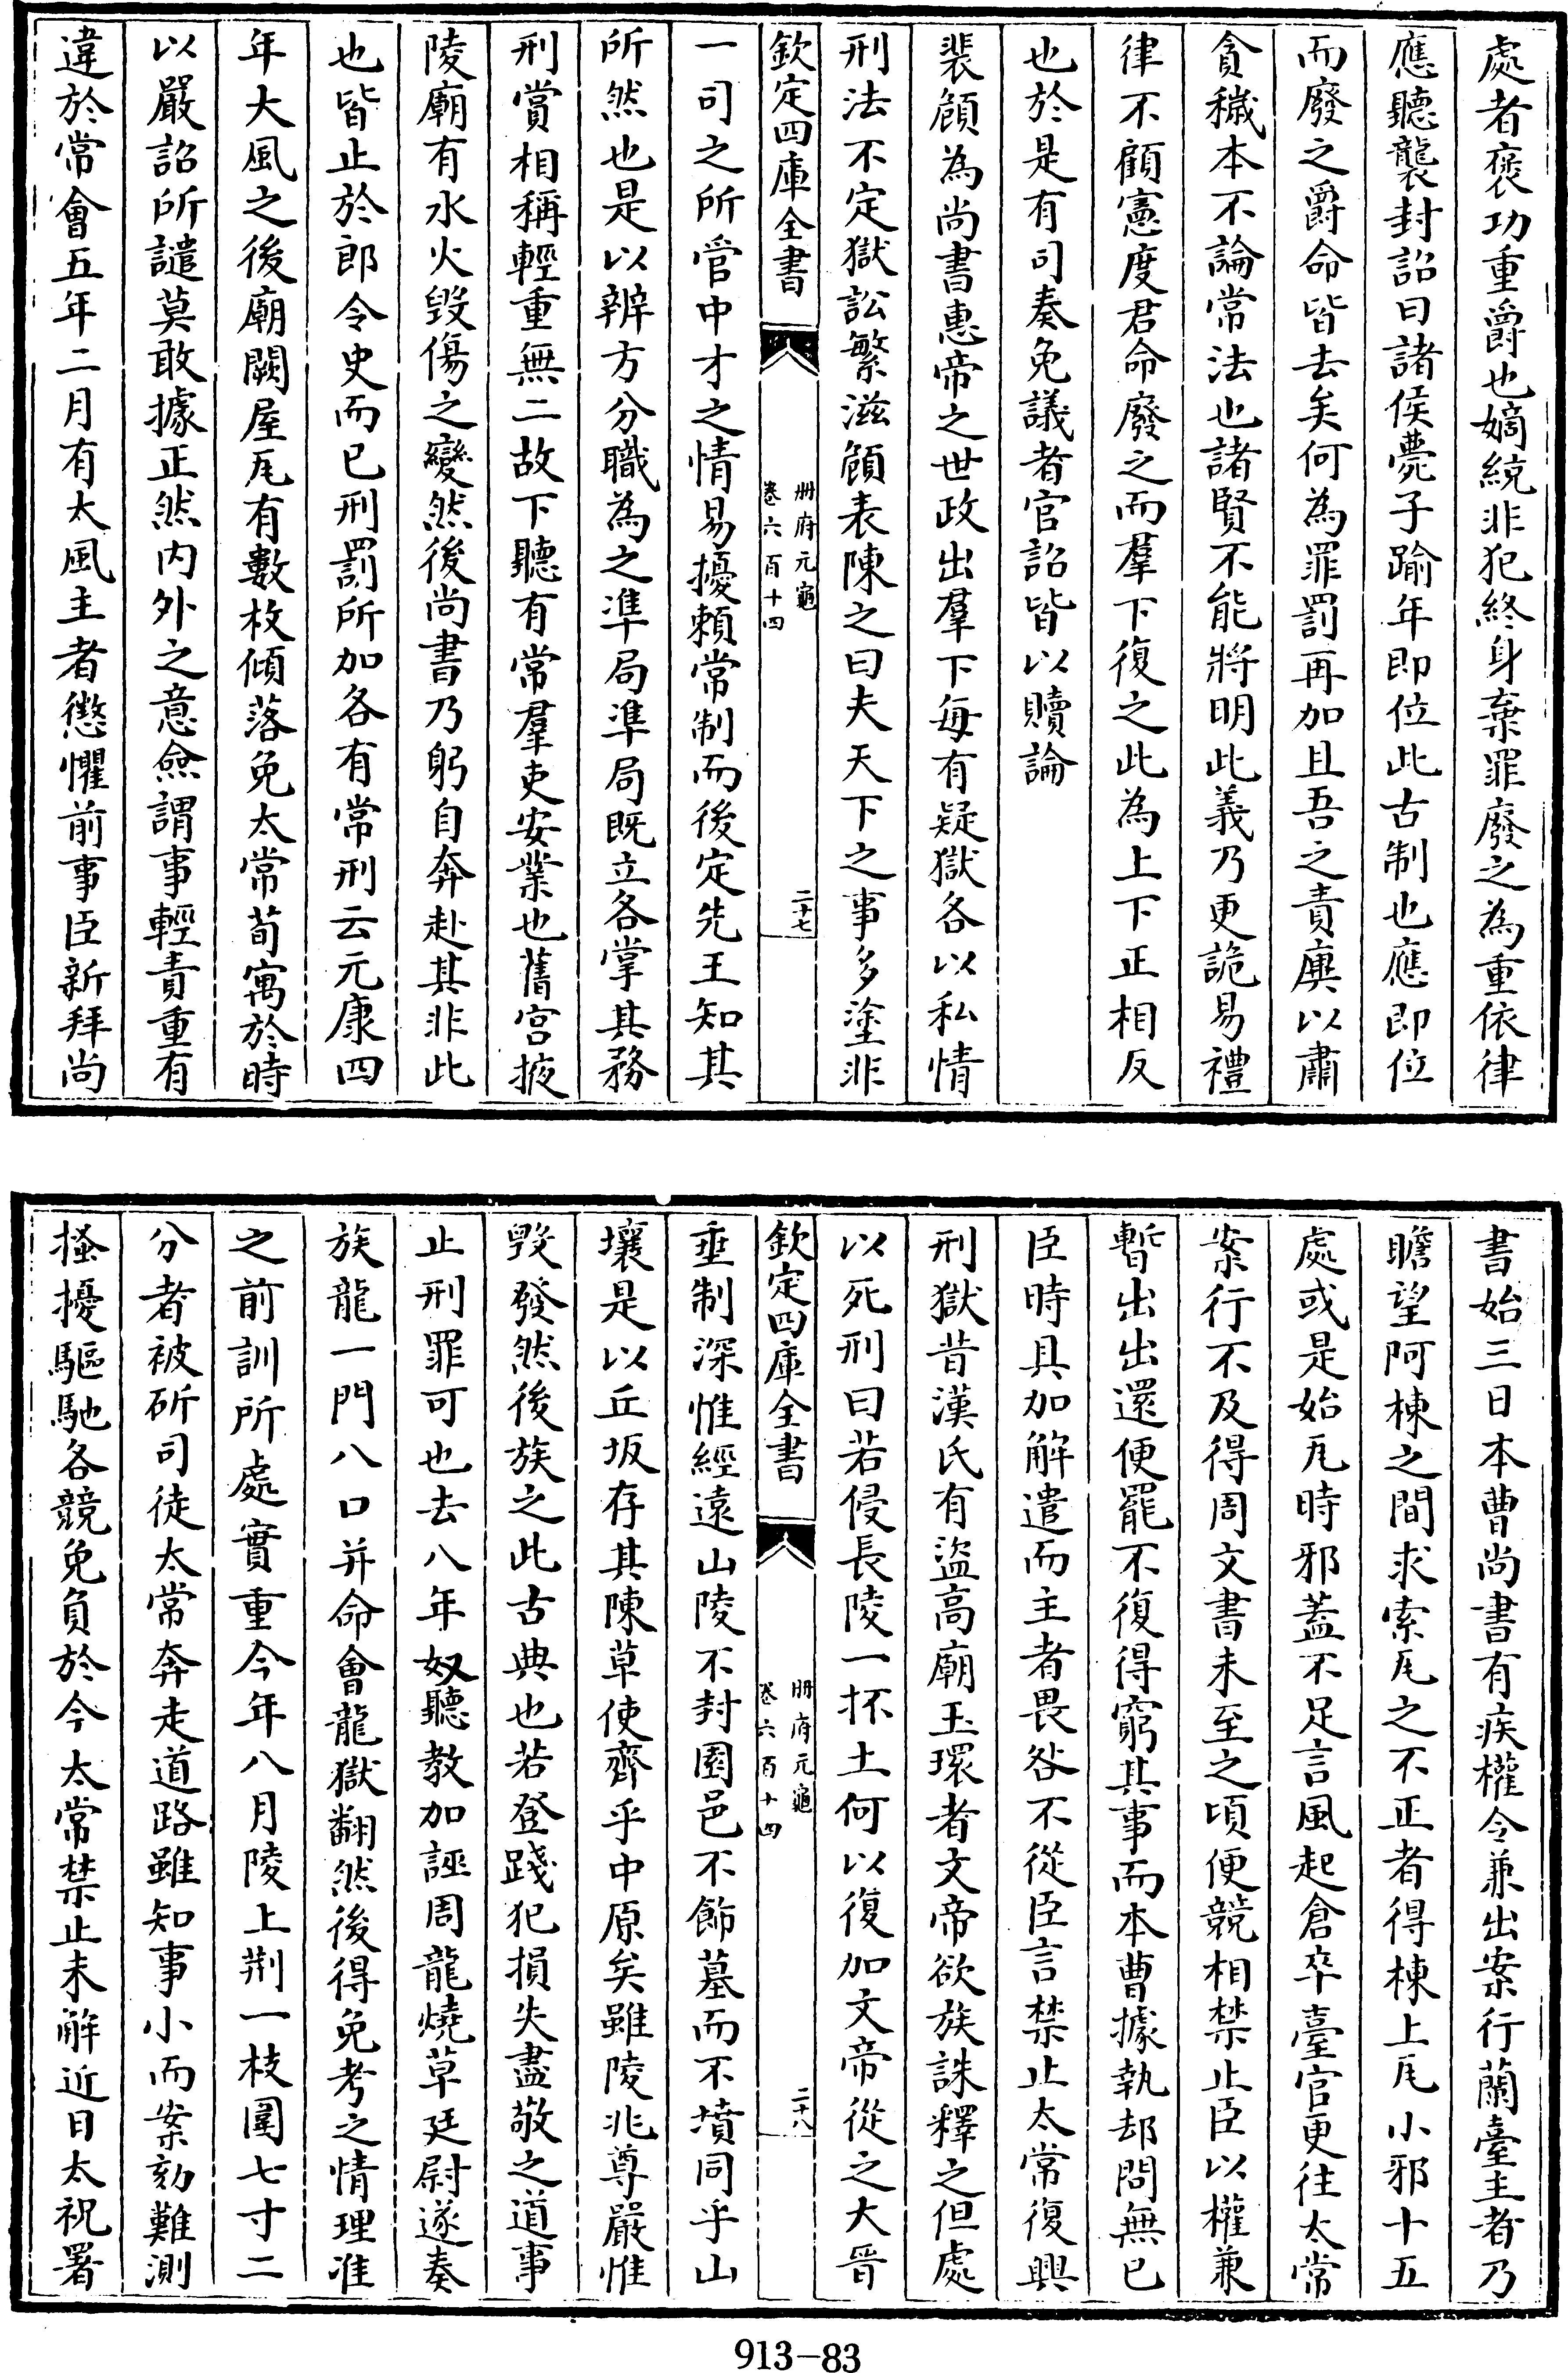 處者褒功重爵也嫡統非犯終身棄罪廢之為重依律
應聽襲封詔曰諸侯薨子踰年即位此古制也應即位
而廢之爵命皆去矣何為罪罰再加且吾之責廙以肅
貪穢本不論常法也諸賢不能將明此義乃更詭易禮
律不顧憲度君命廢之而羣下復之此為上下正相反
也於是有司奏免議者官詔皆以贖論
裴頠為尚書惠帝之世政出羣下每有疑獄各以私情
刑法不定獄訟繁滋頠表陳之曰夫天下之事多塗非
欽定四庫全書
冊府元龜
卷六百十四
二十七
一司之所管中才之情易擾賴常制而後定先王知其
所然也是以辨方分職為之準局準局既立各掌其務
刑賞相稱輕重無二故下聽有常羣吏安業也舊宮掖
陵廟有水火毀傷之變然後尚書乃躬自奔赴其非此
也皆止於郎令史而已刑罰所加各有常刑云元康四
年大風之後廟闕屋瓦有數枚傾落免太常荀寓於時
以嚴詔所譴莫敢據正然内外之意僉謂事輕責重有
違於常會五年二月有太風主者懲懼前事臣新拜尚
書始三日本曹尚書有疾權令兼出案行蘭臺主者乃
瞻望阿棟之間求索瓦之不正者得棟上瓦小邪十五
處或是始瓦時邪蓋不足言風起倉卒臺官更往太常
案行不及得周文書未至之頃便競相禁止臣以權兼
暫出出還便罷不復得窮其事而本曹據執却問無已
臣時具加解遣而主者畏咎不從臣言禁止太常復興
刑獄昔漢氏有盜高廟玉環者文帝欲族誅釋之但處
以死刑曰若侵長陵一抔土何以復加文帝從之大晉
欽定四庫全書
冊府元龜
卷六百十四
二十八
垂制深惟經遠山陵不封園邑不飾墓而不墳同乎山
壤是以丘坂存其陳草使齊乎中原矣雖陵兆尊嚴惟
毀發然後族之此古典也若登踐犯損失盡敬之道事
止刑罪可也去八年奴聽教加誣周龍燒草廷尉遂奏
族龍一門八口并命會龍獄翻然後得免考之情理准
之前訓所處實重今年八月陵上荆一枝圍七寸二
分者被斫司徒太常奔走道路雖知事小而案劾難測
搔擾驅馳各競免負於今太常禁止未解近日太祝署
913-83